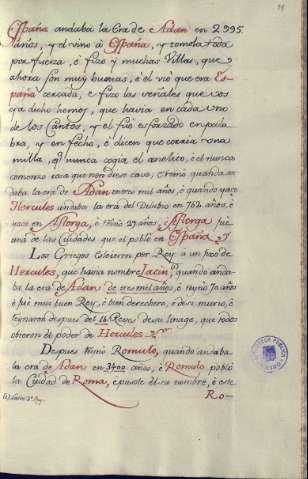 España andaba la Era de Adan en 2995
años, y el vino à España, y tomola toda
por fuerza, è fizo y muchas Villas, que
ahora son muy buenas, è él vió que era Es
paña cercada, e fizo las señales que vos
era dicho hemos, que havia en cada uno
de los Cantos, y el fué esforzado en pala
bra, y en fecho, è dicen que corria una
milla, q.e nunca cogia el aneleto, è él nunca
comenzó cosa que non diese cavo, è reinó quando an
daba la era de Adan en tres mil años, è quando yaco
Hercules andaba la era del Dilubio en 762 años, è
yace en Astorga, è reinó 27 años, è Astorga fué
una de las Ciudades que él pobló en España
Los Griegos escieron por Rey a un fixo de
Hercules, que havia nombre Iacin, quando anda
ba la era de Adan de tres mil años, è reynó 70 años
è fué mui buen Rey, è bien derechero, è desi murió, è
reynaron despues del 14 Reyes de su linage, que todos
obieron el poder de Hercules
Despues vinió Romulo, quando andaba
la era de Adan en 3400 años, è Romulo pobló
la Ciudad de Roma, e pusole el su nombre, è este
Ro-